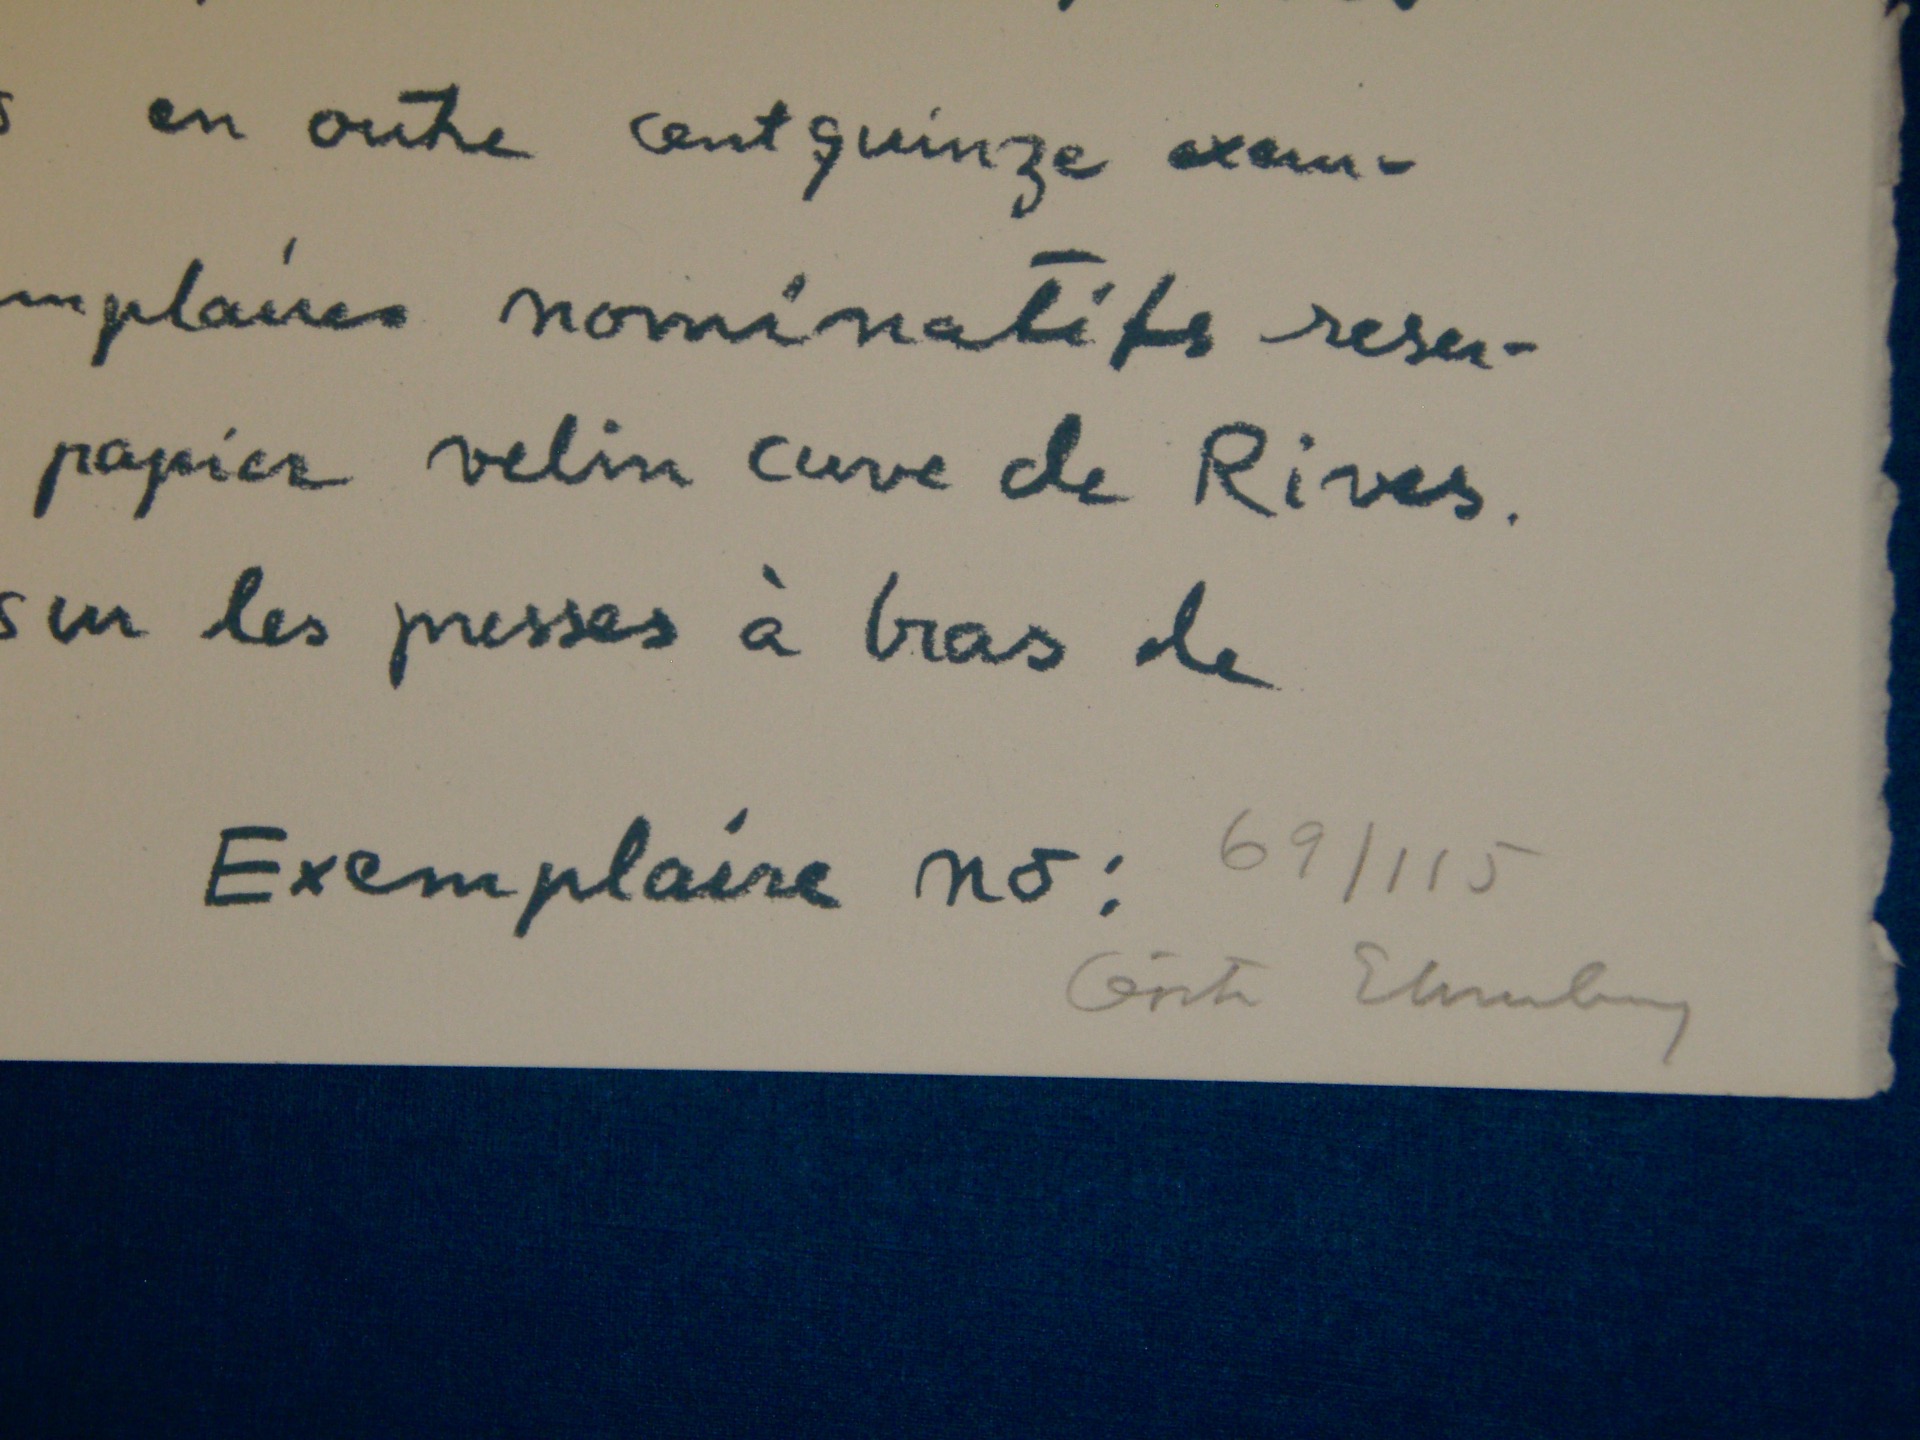 en outre centquinze exem-
mplaires nominatifs reser-
papier velin cuve de Rives.
sur les presses à bras de
Exemplaire no: 69/115
Gösta Ehrenberg